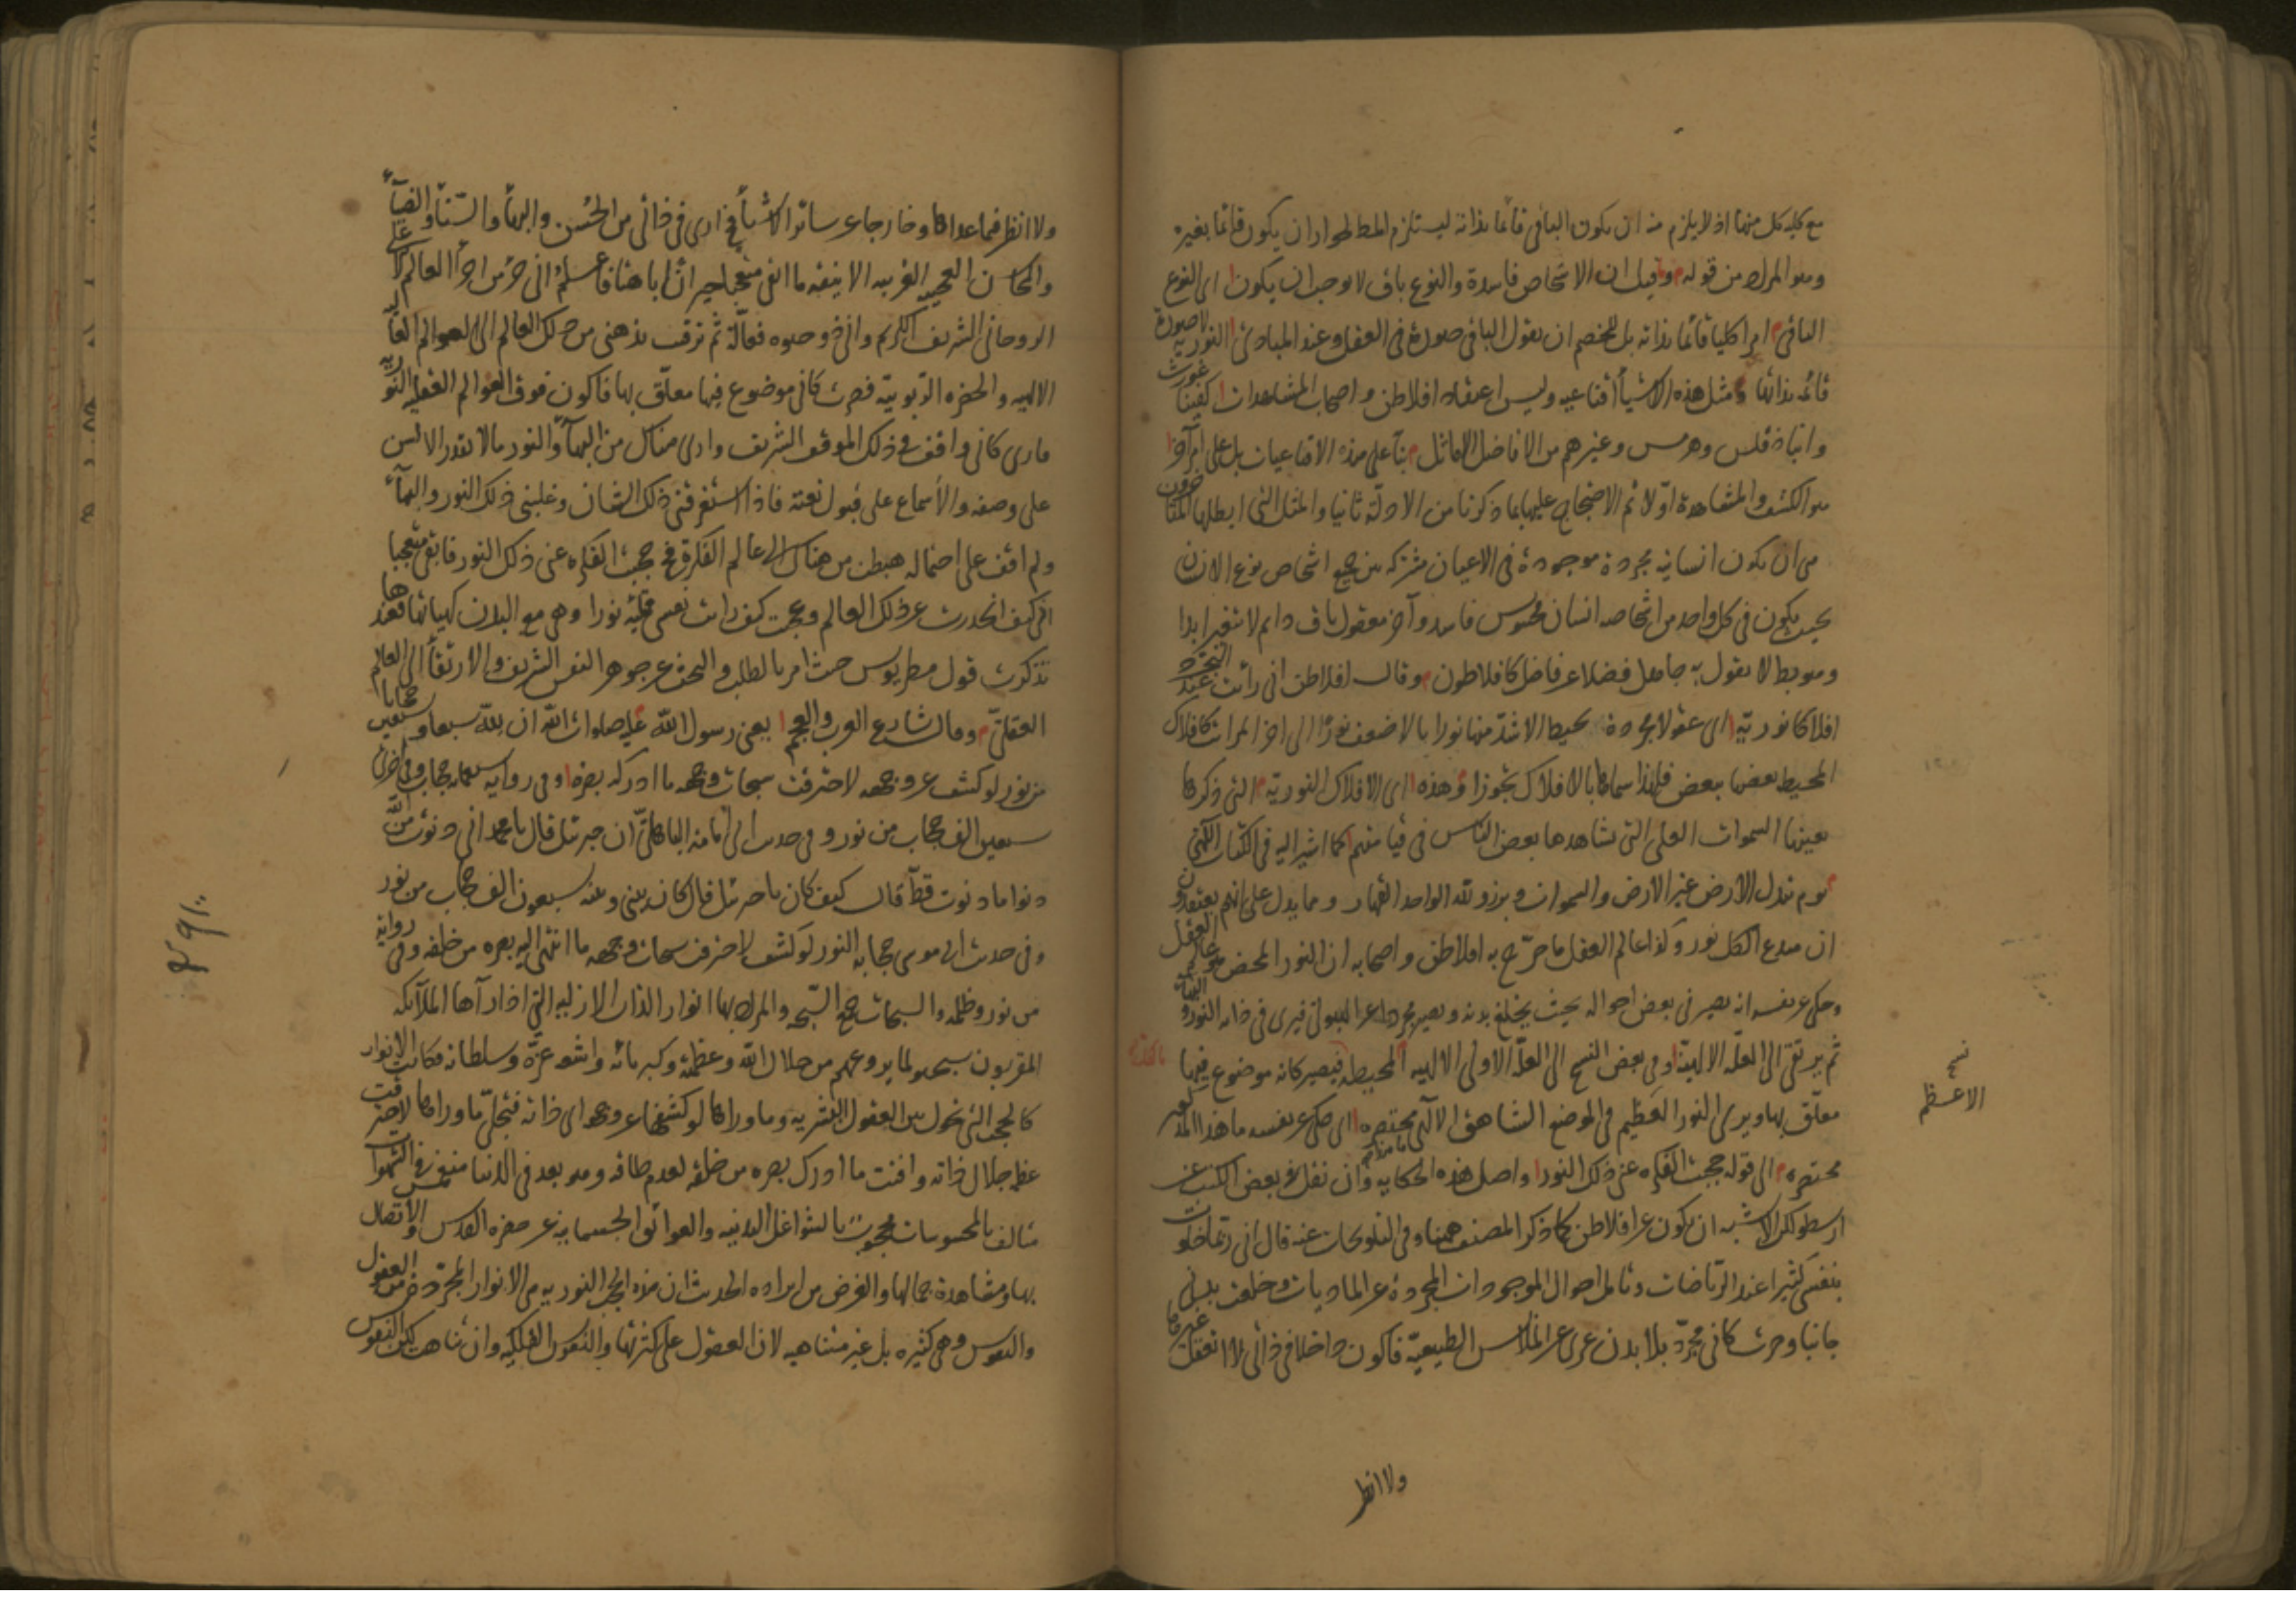 مع كلية كل منهما اذ لا يلزم منه ان يكون الباقى قائما بذاته ليستلزم المط لجواز ان يكون قائما بغيره
وهو المراد من قوله وقيل ان الاشخاص فاسدة والنوع باق لا يوجب ان يكون اى النوع
الباقى امرا كليا قائما بذاته بل للخصم ان يقول الباقى صورة فى العقل وعند المبادئ النورية لا صورة
قائمة بذاتها ومثل هذه الاشياء اقناعية وليس اعتقاد افلاطن واصحاب المشاهدات كفيثاغورث
وانباذقلس وهرمس وغيرهم من الافاضل الاماثل بناء على هذه الاقناعيات بل على امر آخر
هو الكشف والمشاهدة اولا ثم الاحتجاج عليها بما ذكرنا من الادلة ثانيا والمثل التى ابطلها المتأخرون
هى ان يكون انسانية مجردة موجودة فى الاعيان مشتركة بين جميع اشخاص نوع الانسان
بحيث يكون فى كل واحد من اشخاصه انسان محسوس فاسد وآخر معقول باق دايم لا يتغير ابدا
وهو بط لا يقول به جاهل فضلا عن فاضل كافلاطون وقال افلاطن انى رأيت عند التجرد
افلاكا نورية اى عقولا مجردة يحيط الاشد منها نورا بالاضعف نورا الى اخر المراتب كافلاك
المحيط بعضها ببعض فلهذا سماها بالافلاك تجوزا وهذه اى الافلاك النورية التى ذكرها
بعينها السموات العلى التى يشاهدها بعض الناس فى قيامتهم كما اشير اليه فى الكتاب الالهى
يوم تبدل الارض غير الارض والسموات وبرزوا لله الواحد القهار ومما يدل على انهم يعتقدون
ان مبدع الكل نور وكذا عالم العقل ما صرح به افلاطن واصحابه ان النور المحض هو عالم العقل
وحكى عن نفسه انه يصير فى بعض احواله بحيث يخلع بدنه ويصير مجردا عن الهيولى فيرى فى ذاته النور والبهاء
ثم يرتقى الى العلة الالهية وفى بعض النسخ الى العلة الاولى الالهية المحيطة فيصير كانه موضوع فيها
معلق بها ويرى النور العظيم فى الموضع الشاهق الالهى مختصره اى حكى عن نفسه ما هذا الذى
مختصره الى قوله حجبت الفكرة عنى ذلك النور واصل هذه الحكاية وان نقل فى بعض الكتب عن
ارسطو لكن الاشبه ان يكون عن افلاطن كما ذكر المصنف ههنا وفى التلويحات عنه قال انى ربما خلوت
بنفسى كثيرا عند الرياضات وتأمل احوال الموجودات المجردة عن الماديات وخلعت بدنى
جانبا وصرت كانى مجرد بلا بدن عرى عن الملابس الطبيعية فاكون داخلا فى ذاتى لا اتعقل غيرها
ولا انظر
نسخ
الاعظم
ولا انظر فيما عداها وخارجا عن سائر الاشياء فح ارى فى ذاتى من الحسن والبهاء والسناء والضياء
والمحاسن العجيبة الغريبة الانيقة ما ابقى متعجبا حيران باهتا فاعلم انى جزء من اجزاء العالم الاعلى
الروحانى الشريف الكريم وانى ذو حيوة فعالة ثم ترقيت بذهنى من ذلك العالم الى العوالم العالية
الالهية والحضرة الربوبية فصرت كانى موضوع فيها معلق بها فاكون فوق العوالم العقلية النورية
فارى كانى واقف فى ذلك الموقف الشريف وارى هناك من البهاء والنور ما لا تقدر الالسن
على وصفه والاسماع على قبول نعته فاذا استغرقنى ذلك الشان وغلبنى ذلك النور والبهاء
ولم اقف على احتماله هبطت من هناك الى عالم الفكرة فح حجبت الفكرة عنى ذلك النور فابقى متعجبا
انى كيف انحدرت عن ذلك العالم وعجبت كيف رايت نفسى ممتلية نورا وهى مع البدن كهيأتها فعندها
تذكرت قول مطريوس حيث امر بالطلب والبحث عن جوهر النفس الشريف والارتقاء الى العالم
العقلى وقال شارع العرب والعجم يعنى رسول الله عليه صلوات الله ان لله سبعا وسبعين حجابا
من نور لو كشفت عن وجهه لاحترقت سبحات وجهه ما ادرك بصره وفى رواية سبعماية حجاب وفى اخرى
سبعين الف حجاب من نور وفى حديث ابى امامة الباهلى ان جبرئيل قال يا محمد انى دنوت من الله
دنوا ما دنوت قط قال كيف كان يا جبرئيل قال كان بينى وبينه سبعون الف حجاب من نور
وفى حديث ابى موسى حجابه النور لو كشف لاحترقت سبحات وجهه ما انتهى اليه بصره من خلقه وفى رواية
من نور وظلمة والسبحات جمع السبحة والمراد بها انوار الذات الازلية التى اذا رآها الملائكة
المقربون سبحوا لما يروعهم من جلال الله وعظمته وكبريائه واشعة عزه وسلطانه فكانت الانوار
كالحجب التى تحول بين العقول البشرية وما وراها لو كشفها عن وجهه اى ذاته فتجلى ما وراها لاحترقت
عظمة جلال ذاته وافنت ما ادرك بصره من خلقه لعدم طاقته وهو بعد فى الدنيا منغمس فى الشهوات
متالف بالمحسوسات محجوب بالشواغل البدنية والعوائق الجسمانية عن حضرة القدس والاتصال
بها ومشاهدة جمالها والغرض من ايراده الحديث ان هذه الحجب النورية هى الانوار المجردة من العقول
والنفوس وهى كثيرة بل غير متناهية لان العقول على كثرتها والنفوس الفلكية وان تناهت لكن النفوس